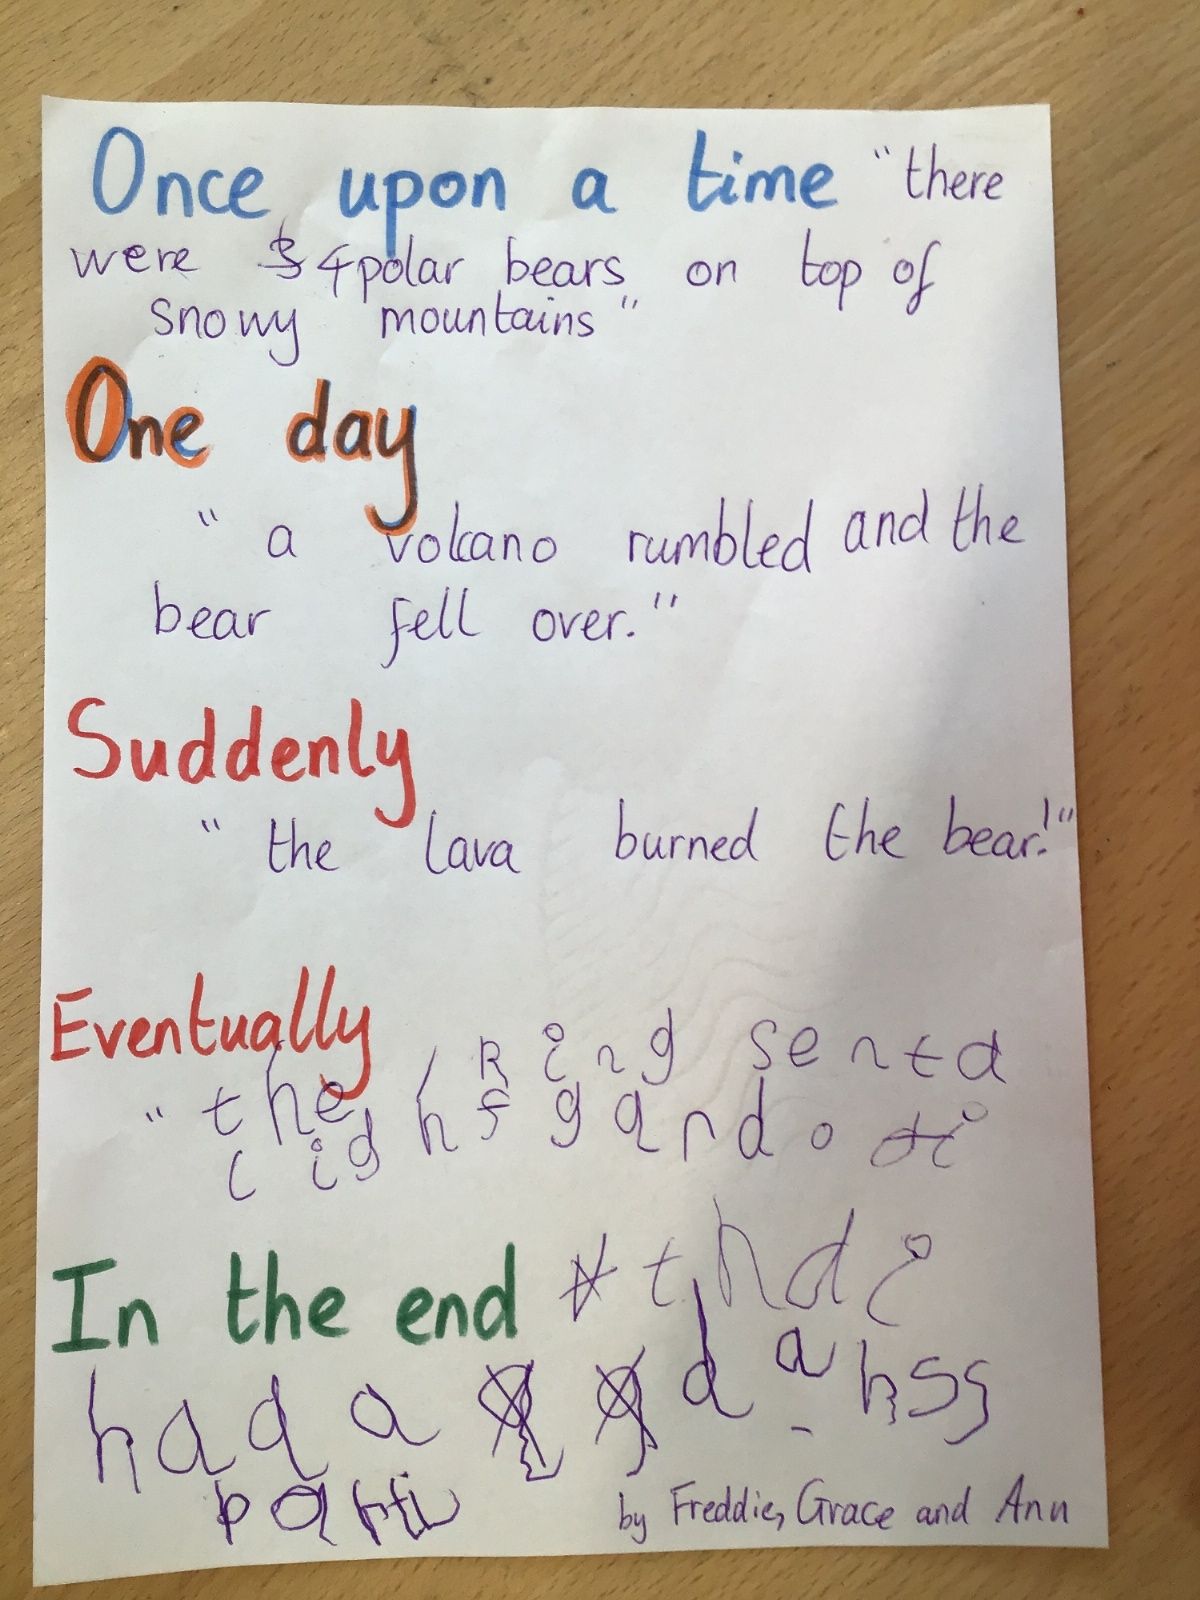 Once upon a time "there
were 4 polar bears on top of
snowy mountains"
One day
"a volcano rumbled and the
bear fell over."
Suddenly
"the lava burned the bear!"
Eventually
"the king senta
hfgando
In the end thdi
hada a dahss
parti
by Freddie, Grace and Ann